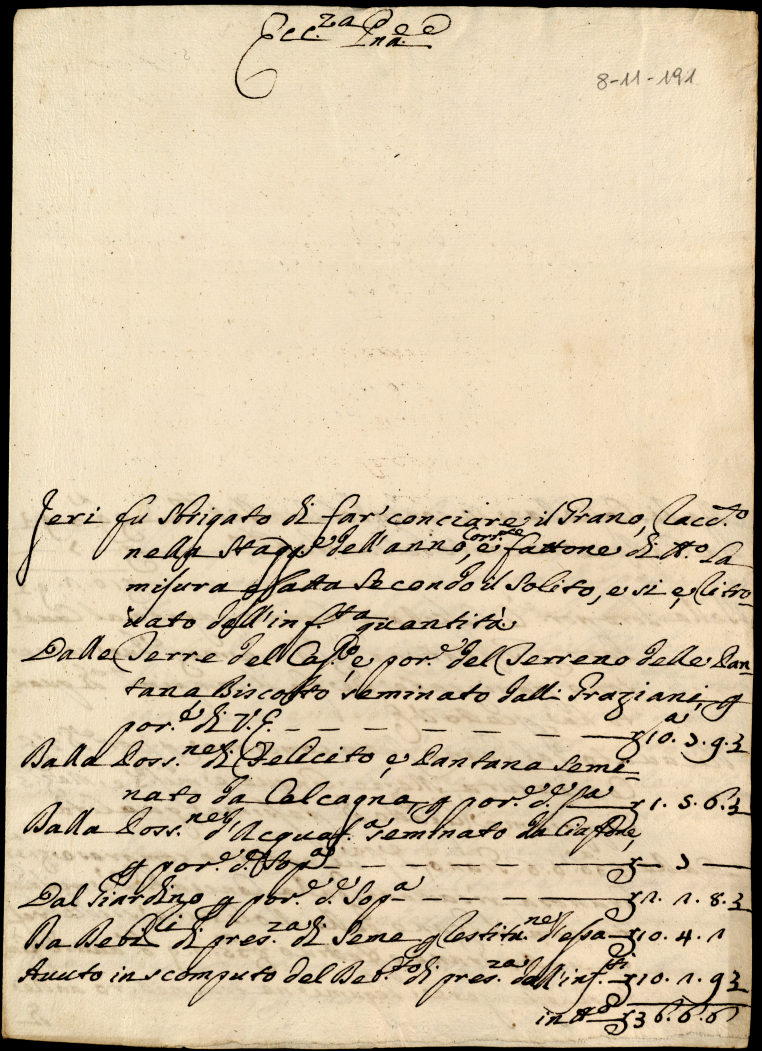 Ecc.za P̅na
8-11-191
Jeri fù sbrigato di far' conciare il Grano, racc.to
nella Stag.ne dell'anno corr.te, e fattone di tt.o la
misura fatta secondo il solito, e si è ritro-
uato dell'inf.tta quantità
Dalle Terre del e por.e del Terreno delle Pan-
tana Biscotto seminato dalli Graziani, p
por.e di V.E. 10. 3. 9. 3
Dalla Poss.ne di Felicito, e Pantana semi-
nato da Calcagna, p por.e d. s.a 1. 5. 6. 3
Dalla Poss.ne d'Acqua seminato da Ciaffone,
p por.e d. sop.a 3
Dal Giardino p por.e d. sop.a 1. 1. 8. 3
Da Deb.ti di pres.za di seme p restitu.ne d'essa 10. 4. 1
Auuto in scomputo del Deb.to di pres.za dall'inf.tti 10. 1. 9 3
in tt.o 36. 6. 6